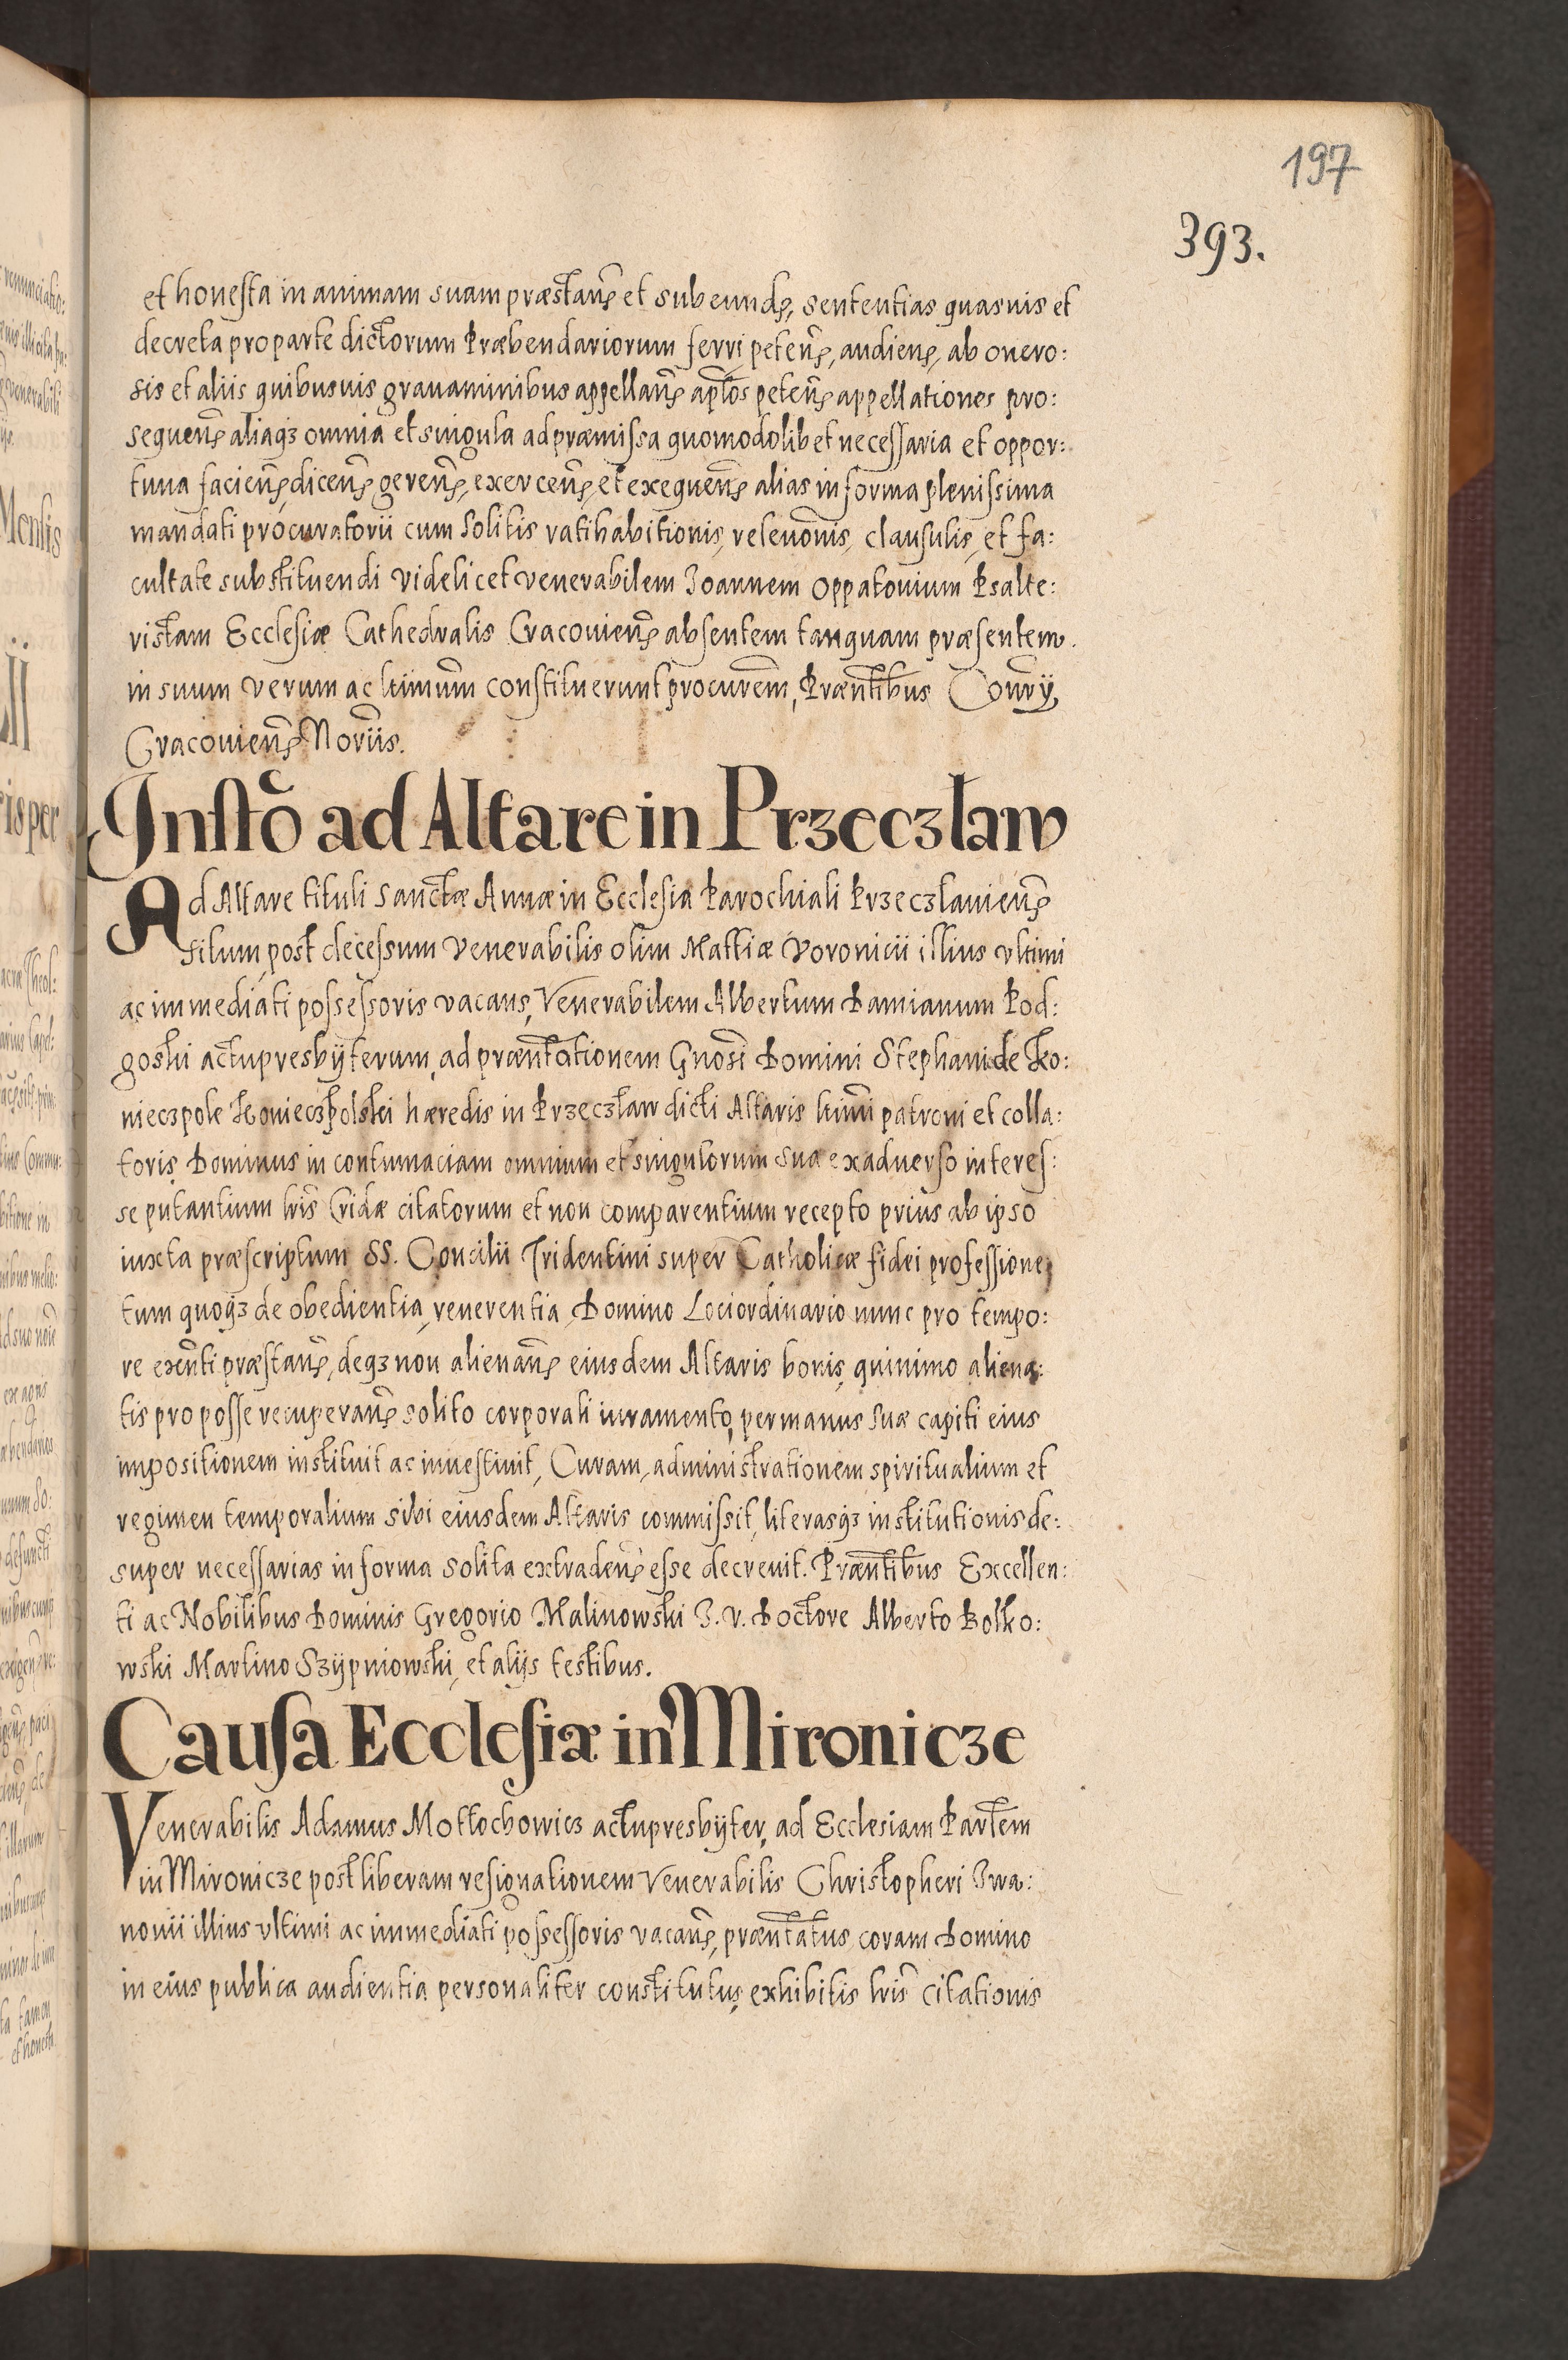 197
393.
et honesta in animam suam præstanđ et subeunđ, sententias quasuis et
decreta pro parte dictorum Præbendariorum ferri petenđ, audienđ, ab onero:
sis et aliis quibusuis grauaminibus appellanđ apłos petenđ appellationes pro:
sequenđ aliaqꝫ omnia et singula ad præmissa quomodolibet necessaria et oppor:
tuna facienđ, dicenđ, gerenđ, exercenđ, et exequenđ alias in forma plenissima
mandati procuratorii cum solitis ratihabitionis, releuõnis, clausulis, et fa:
cultate substituendi videlicet venerabilem Joannem Oppatouium Psalte:
ristam Ecclesiæ Cathedralis Cracouienš absentem tanquam præsentem.
in suum verum ac ltimum̃ constituerunt procurem̃, Præntĩbus Conrỹ,
Cracouienš Norĩis.
Instõ ad Altare in Przeczław
Ad Altare tituli Sanctæ Annæ in Ecclesia Parochiali Przeczłauienš
situm, post decessum Venerabilis olim Mattiæ Voronicii illius vltimi
ac immediati possessoris vacans, Venerabilem Albertum Damianum Pod:
goski actupresbÿterum, ad præntãtionem Gnosĩ Domini Stephani de Ko:
niecżpole Koniecżpolski hæredis in Przeczław dicti Altaris ltimĩ patroni et colla:
toris, Dominus in contumaciam omnium et singulorum sua ex aduerso interes:
se putantium lrĩs Cridæ citatorum et non comparentium recepto prius ab ipso
iuxta præscriptum SS. Concilii Tridentini super Catholicæ fidei professione,
tum quoqꝫ de obedientia, reuerentia, Domino Loci ordinario nunc pro tempo:
re exñti præstanđ, deqꝫ non alienanđ eiusdem Altaris bonis, quinimo aliena:
tis pro posse recuperanđ solito corporali iuramento, per manus suæ capiti eius
impositionem instituit ac inuestiuit, Curam, administrationem spiritualium et
regimen temporalium sibi eiusdem Altaris commissit, literasqꝫ institutionis de:
super necessarias in forma solita extradenđ esse decreuit. Præntĩbus Excellen:
ti ac Nobilibus Dominis Gregorio Malinowski J. V. Doctore Alberto Bolko:
wski Martino Szÿpniowski, et alÿs testibus.
Causa Ecclesiæ in Mironicze
Venerabilis Adamus Mottochowicz actupresbÿter, ad Ecclesiam Partẽm
in Mironicze post liberam resignationem Venerabilis Christopheri Iwa:
nouii illius vltimi ac immediati possessoris vacanš, præntãtus, coram Domino
in eius publica audientia personaliter constitutus, exhibitis lrĩs citationis